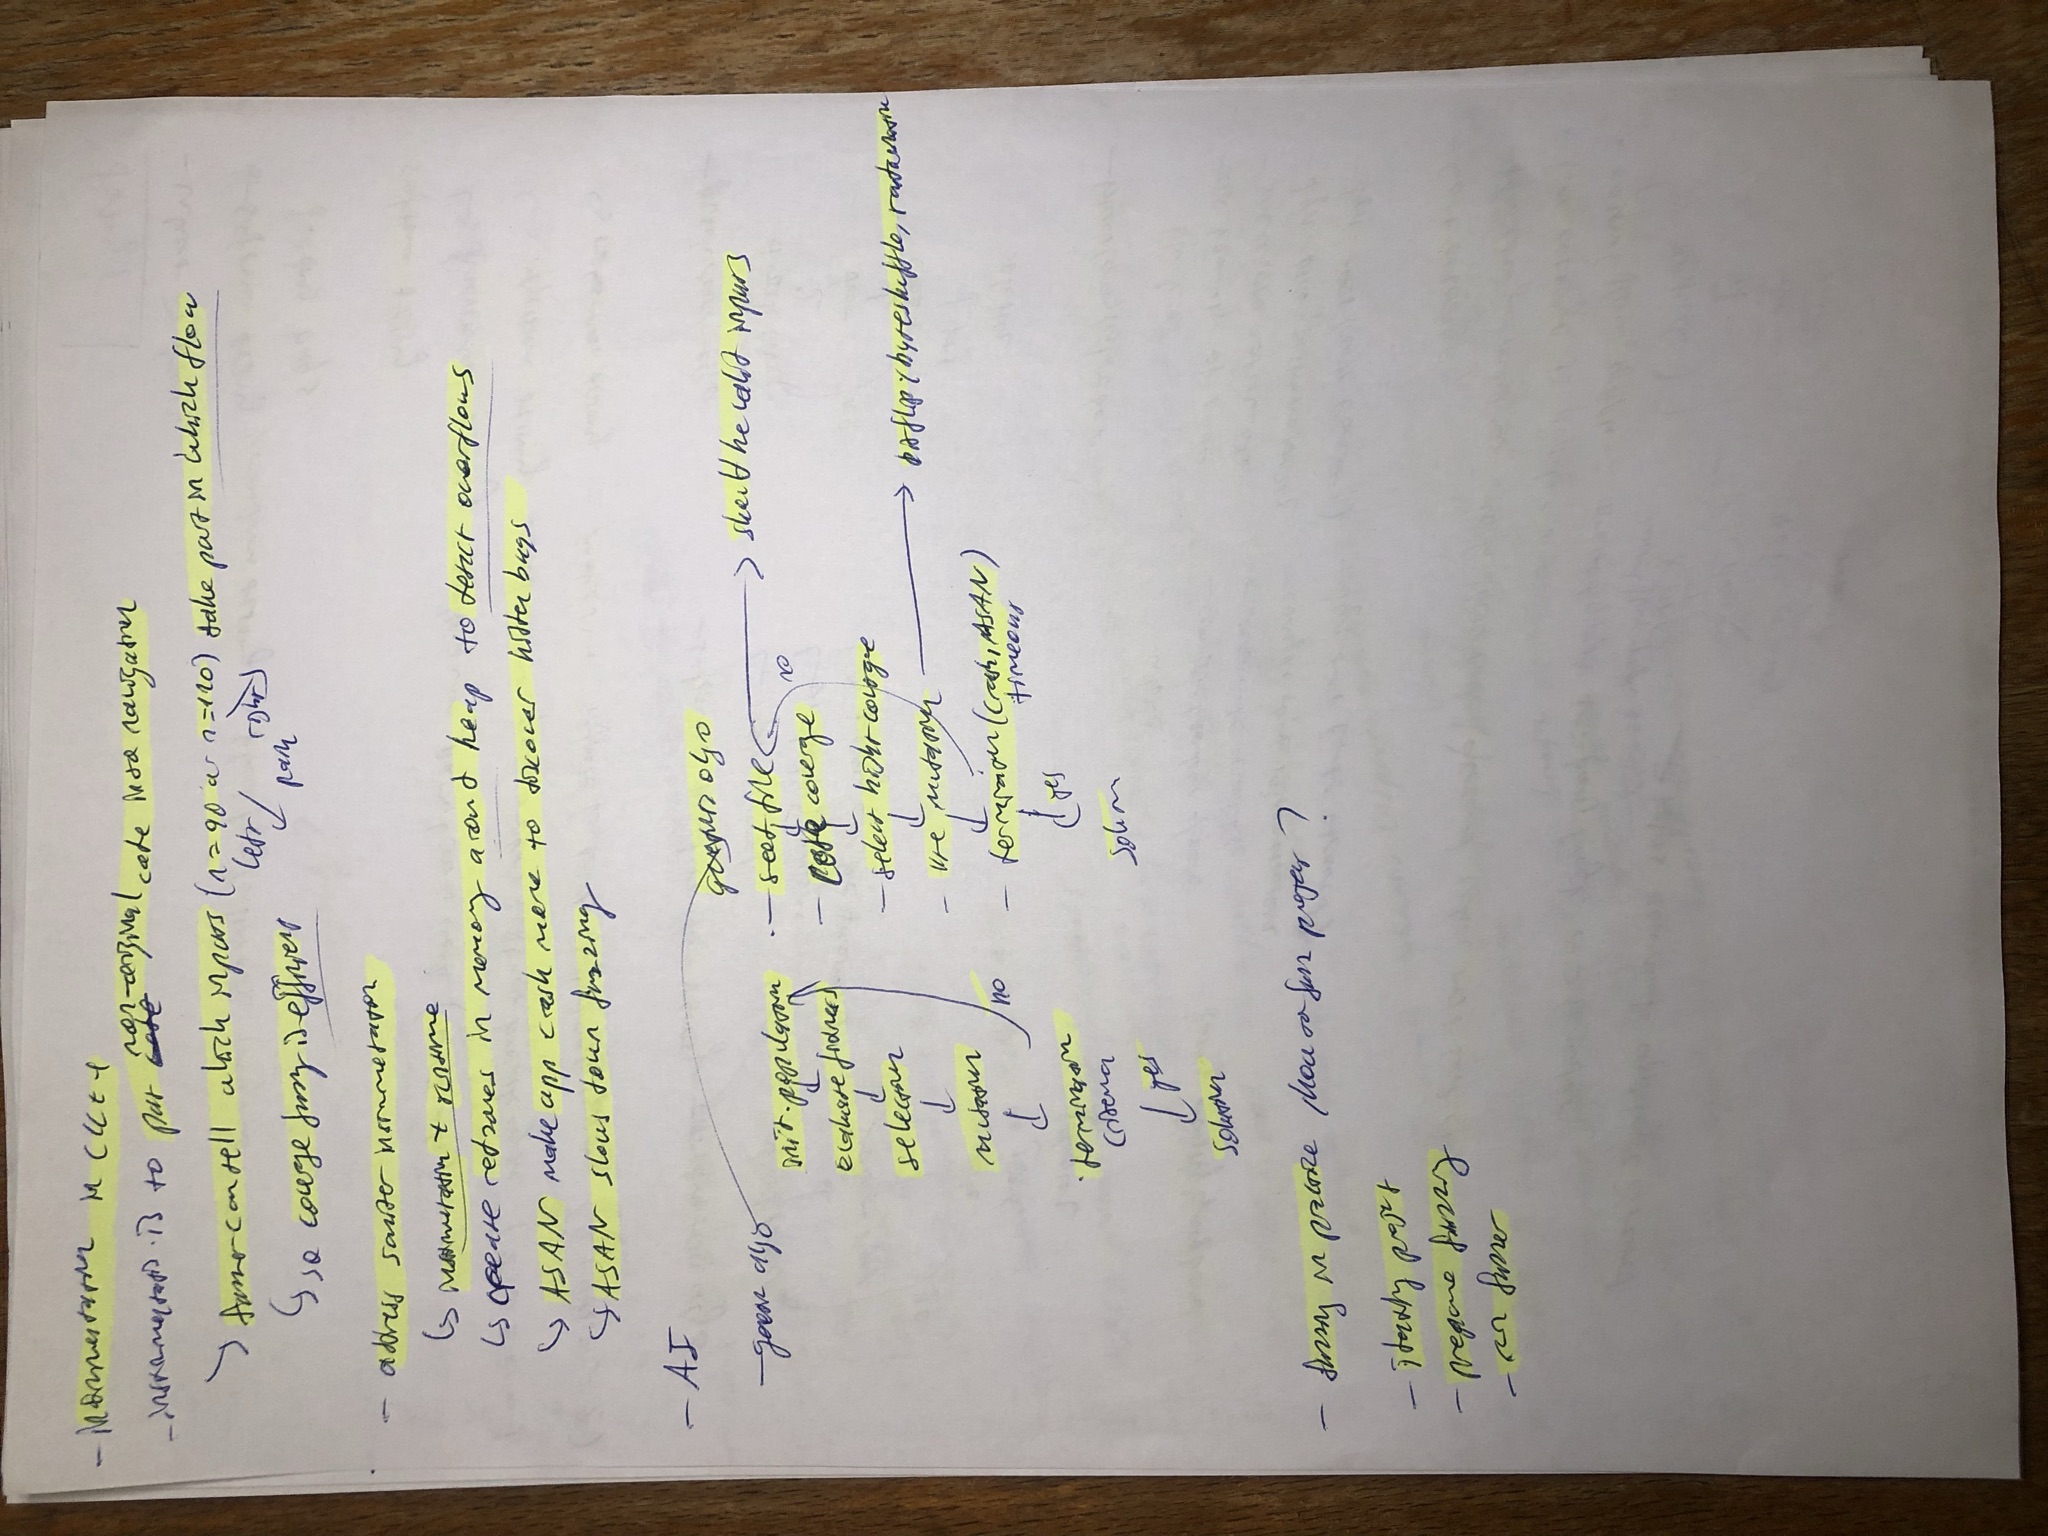 - Instrumentation in C/C++
- instrumentation is to put non-original code into navigation
→ fuzzer can tell which inputs (n=90 or n=110) take part in which flow
left right
path
↳ so coverage fuzzing is effective
- address sanitizer instrumentation
↳ instrumentation + runtime
↳ create redzones in memory around heap to detect overflows
↳ ASAN make app crash more to discover hidden bugs
↳ ASAN slows down fuzzing
- AI
- genetic algo
init. population
evaluate fitness
selection
mutation
no
termination
criteria
yes
solution
algo
- seed file → should be valid inputs
- code coverage
no
- select highest coverage
- use mutation → bitflip, byteshuffle,
- termination (crash, ASAN)
timeouts
yes
solution
- fuzzing in practice / how to fuzz project?
- identify project
- prepare fuzzing
- run fuzzer